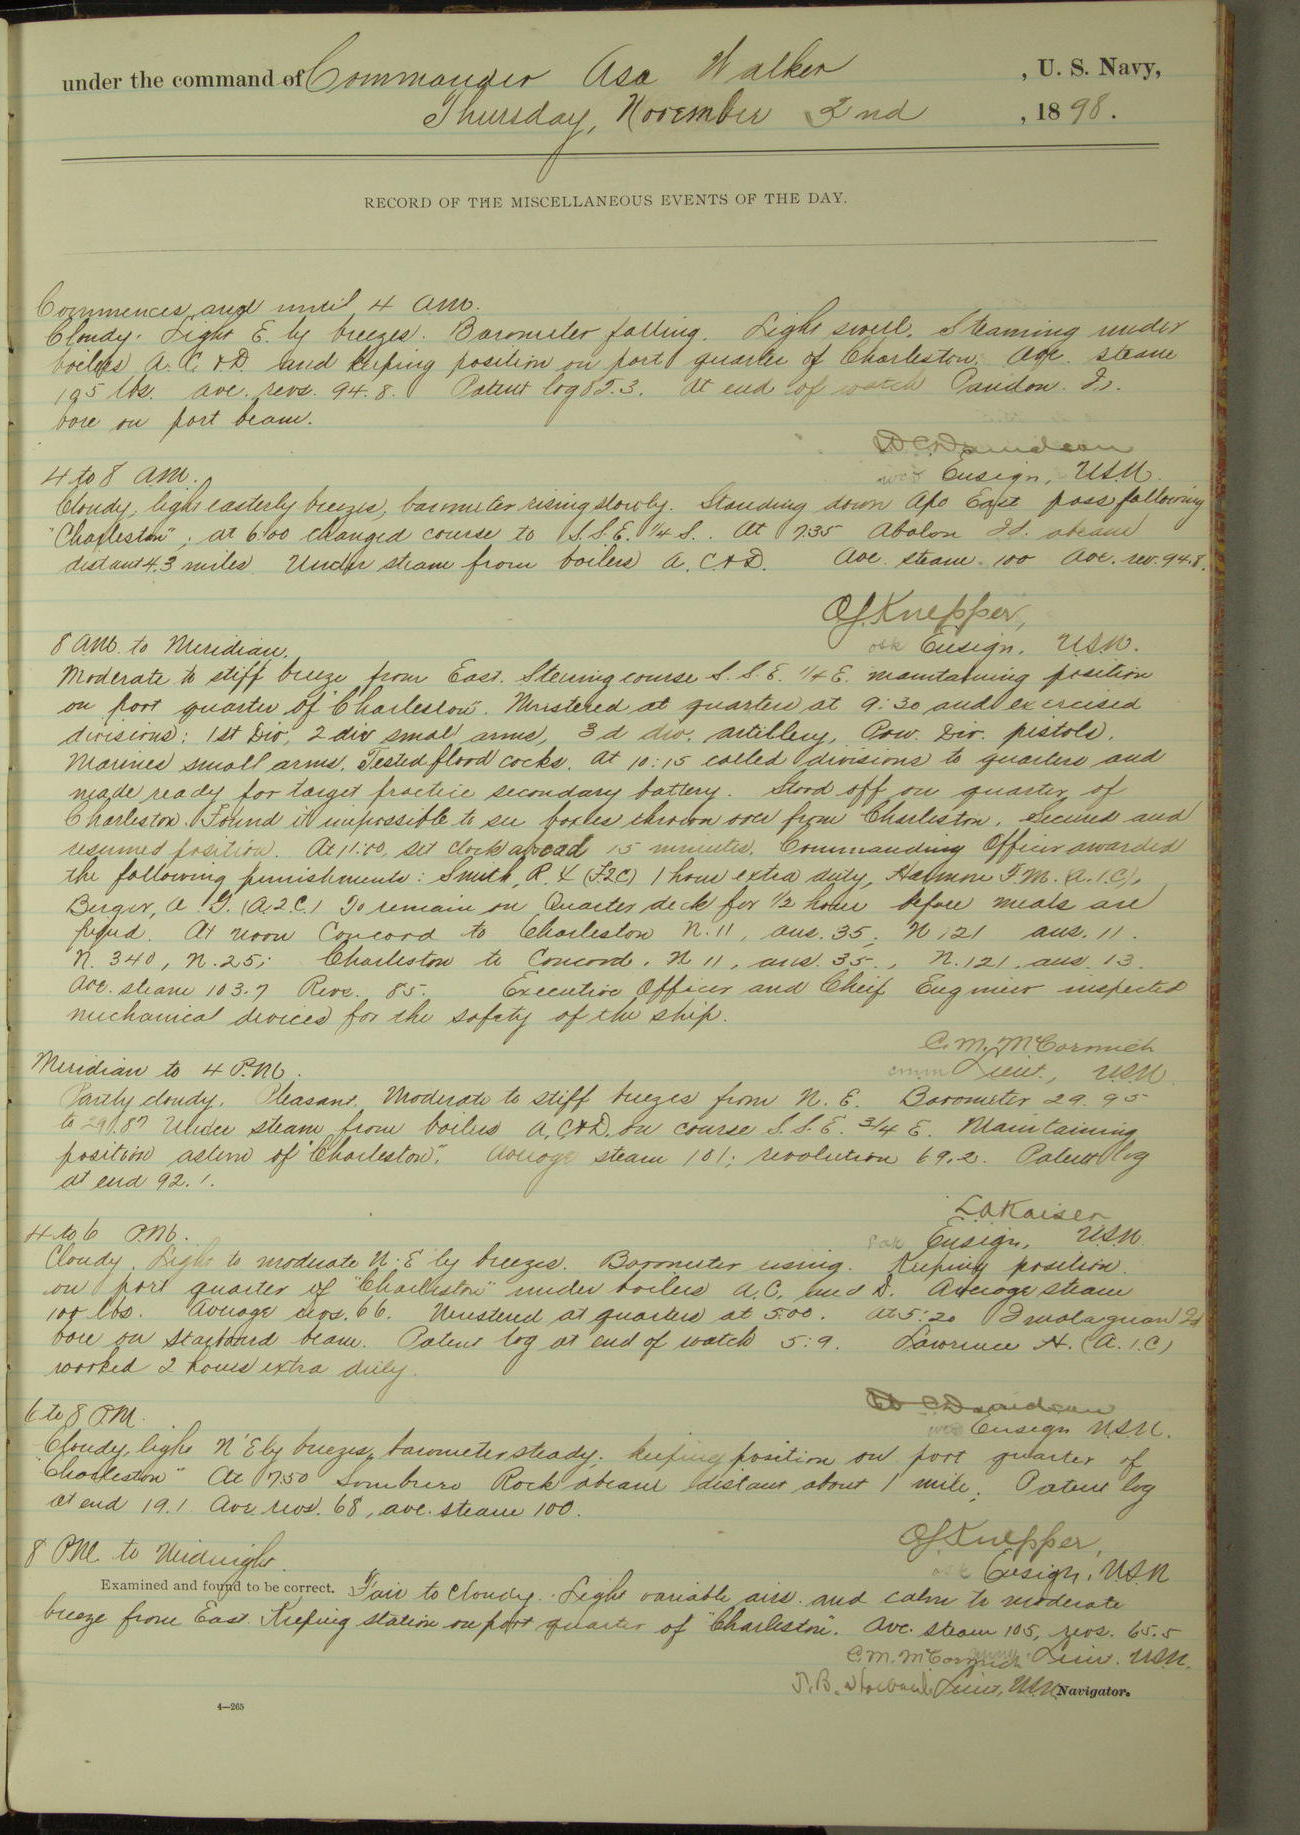 under the command of Commander Asa Walker , U. S. Navy,
Thursday, November 2nd , 1898.
RECORD OF THE MISCELLANEOUS EVENTS OF THE DAY.
Commences and until 4 AM.
Cloudy. Light E. ly breezes. Barometer falling. Light swell. Steaming under
boilers A. C. & D. and keeping position on port quarter of Charleston. Ave. steam
195 lbs. ave. revs. 94.8. Patent log 52.3. At end of watch Pandon Id.
bore on port beam.
W C Davidson
Ensign, USN.
4 to 8 A.M.
Cloudy, light easterly breezes, barometer rising slowly. Standing down Apo East pass following
"Charleston"; at 6:00 changed course to S.S.E. 1/4 S. At 7.35 Abalon Id. abeam
distant 4.3 miles. Under steam from boilers A. C. & D. Ave. steam 100 Ave. rev. 94.8.
O.S. Knepper,
osk Ensign, USN.
8 AM. to Meridian.
Moderate to stiff breeze from East. Steering course S. S. E. 1/4 E. maintaining position
on port quarter of "Charleston". Mustered at quarters at 9:30 and exercised
divisions: 1st Div, 2 div small arms, 3d div. artillery, Pow. Div. pistols.
Marines small arms. Tested flood cocks. At 10:15 called divisions to quarters and
made ready for target practice secondary battery. Stood off on quarter of
Charleston. Found it impossible to see boxes thrown over from Charleston. Secured and
resumed position. At 11:00, set clock ahead 15 minutes. Commanding Officer awarded
the following punishments: Smith, R. Y. (F2C) 1 hour extra duty, Harmon F.M. (A.1.C),
Berger, A. G. (A.2.C.) To remain on Quarter deck for 1/2 hour before meals are
piped. At noon Concord to Charleston N. 11, ans. 35; N 121 ans. 11.
N. 340, N. 25; Charleston to Concord. N 11, ans. 35., N. 121. ans. 13.
Ave. steam 103.7 Revs. 85. Executive Officer and Cheif Engineer inspected
mechanical devices for the safety of the ship.
C. M. McCormick
cmm Lieut., USN.
Meridian to 4 P.M.
Partly cloudy. Pleasant. Moderate to stiff breezes from N. E. Barometer 29.95
to 29.87 Under steam from boilers A, C & D. on course S. S. E. 3/4 E. Maintaining
position astern of "Charleston". Average steam 101; revolution 69.2. Patent log
at end 92.1.
L.A. Kaiser
Lak Ensign, USN.
4 to 6 P.M.
Cloudy. Light to moderate N. E'ly breezes. Barometer rising. Keeping position
on port quarter of "Charleston" under boilers A, C. and D. Average steam
100 lbs. Average revs. 66. Mustered at quarters at 5:00. At 5:20 Id
bore on starboard beam. Patent log at end of watch 5:9. Lawrence H. (A. 1. C)
worked 2 hours extra duty.
W C Davidson
Ensign USN.
6 to 8 P.M.
Cloudy, light N'E'ly breezes, barometer steady, keeping position on port quarter of
"Charleston" At 7.50 Sombrero Rock abeam distant about 1 mile; Patent log
at end 19.1 Ave revs. 68, ave. steam 100.
O.S. Knepper,
osk Ensign, USN
8 P.M. to Midnight.
Examined and found to be correct. Fair to cloudy. Light variable airs and calm to moderate
breeze from East. Keeping station on port quarter of "Charleston". Ave. steam 105, revs. 65.5
C. M. McCormick Lieut. USN.
Lieut, USN Navigator.
4—265